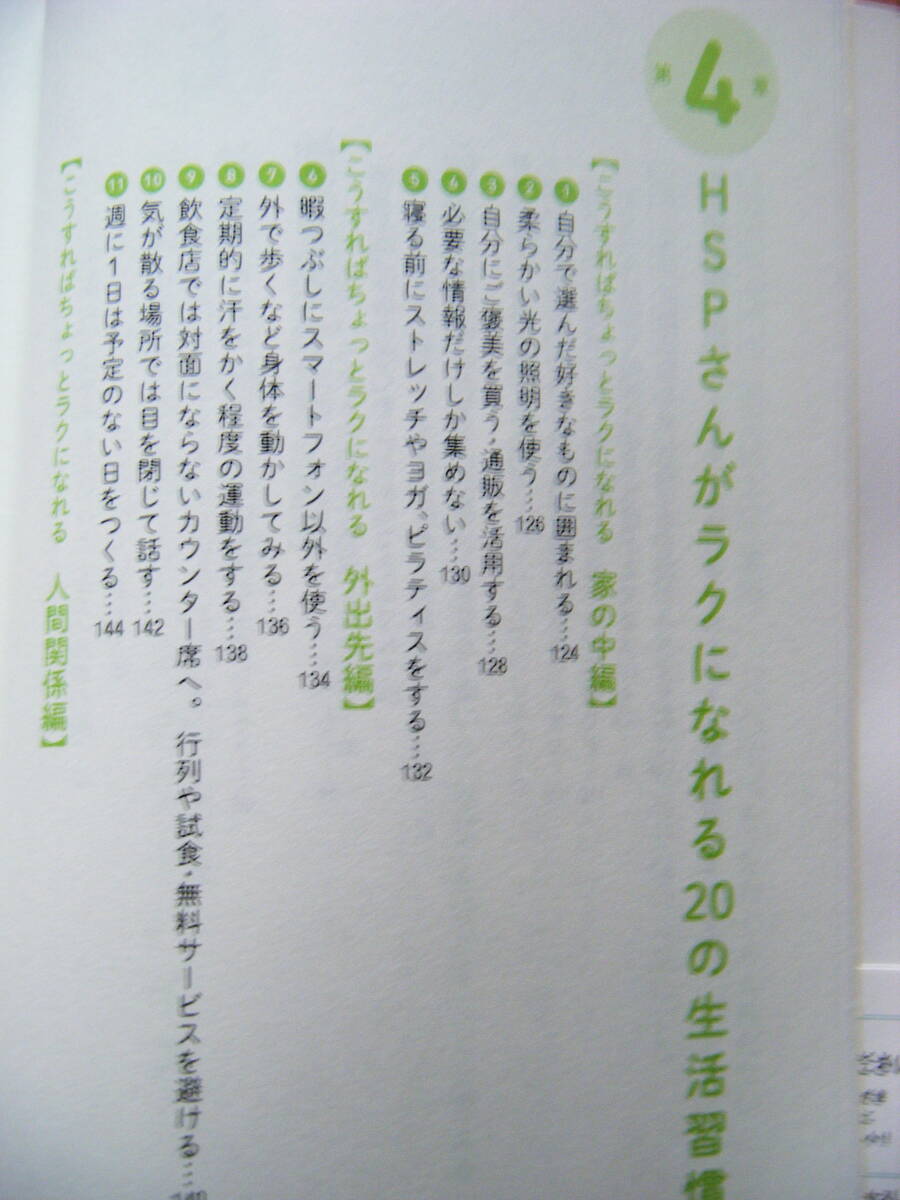 第4章
HSPさんがラクになれる20の生活習慣
【こうすればちょっとラクになれる 家の中編】
1 自分で選んだ好きなものに囲まれる…124
2 柔らかい光の照明を使う…126
3 自分にご褒美を買う・通販を活用する…128
4 必要な情報だけしか集めない…130
5 寝る前にストレッチやヨガ、ピラティスをする…132
【こうすればちょっとラクになれる 外出先編】
6 暇つぶしにスマートフォン以外を使う…134
7 外で歩くなど身体を動かしてみる…136
8 定期的に汗をかく程度の運動をする…138
9 飲食店では対面にならないカウンター席へ。 行列や試食・無料サービスを避ける…140
10 気が散る場所では目を閉じて話す…142
11 週に1日は予定のない日をつくる…144
【こうすればちょっとラクになれる 人間関係編】